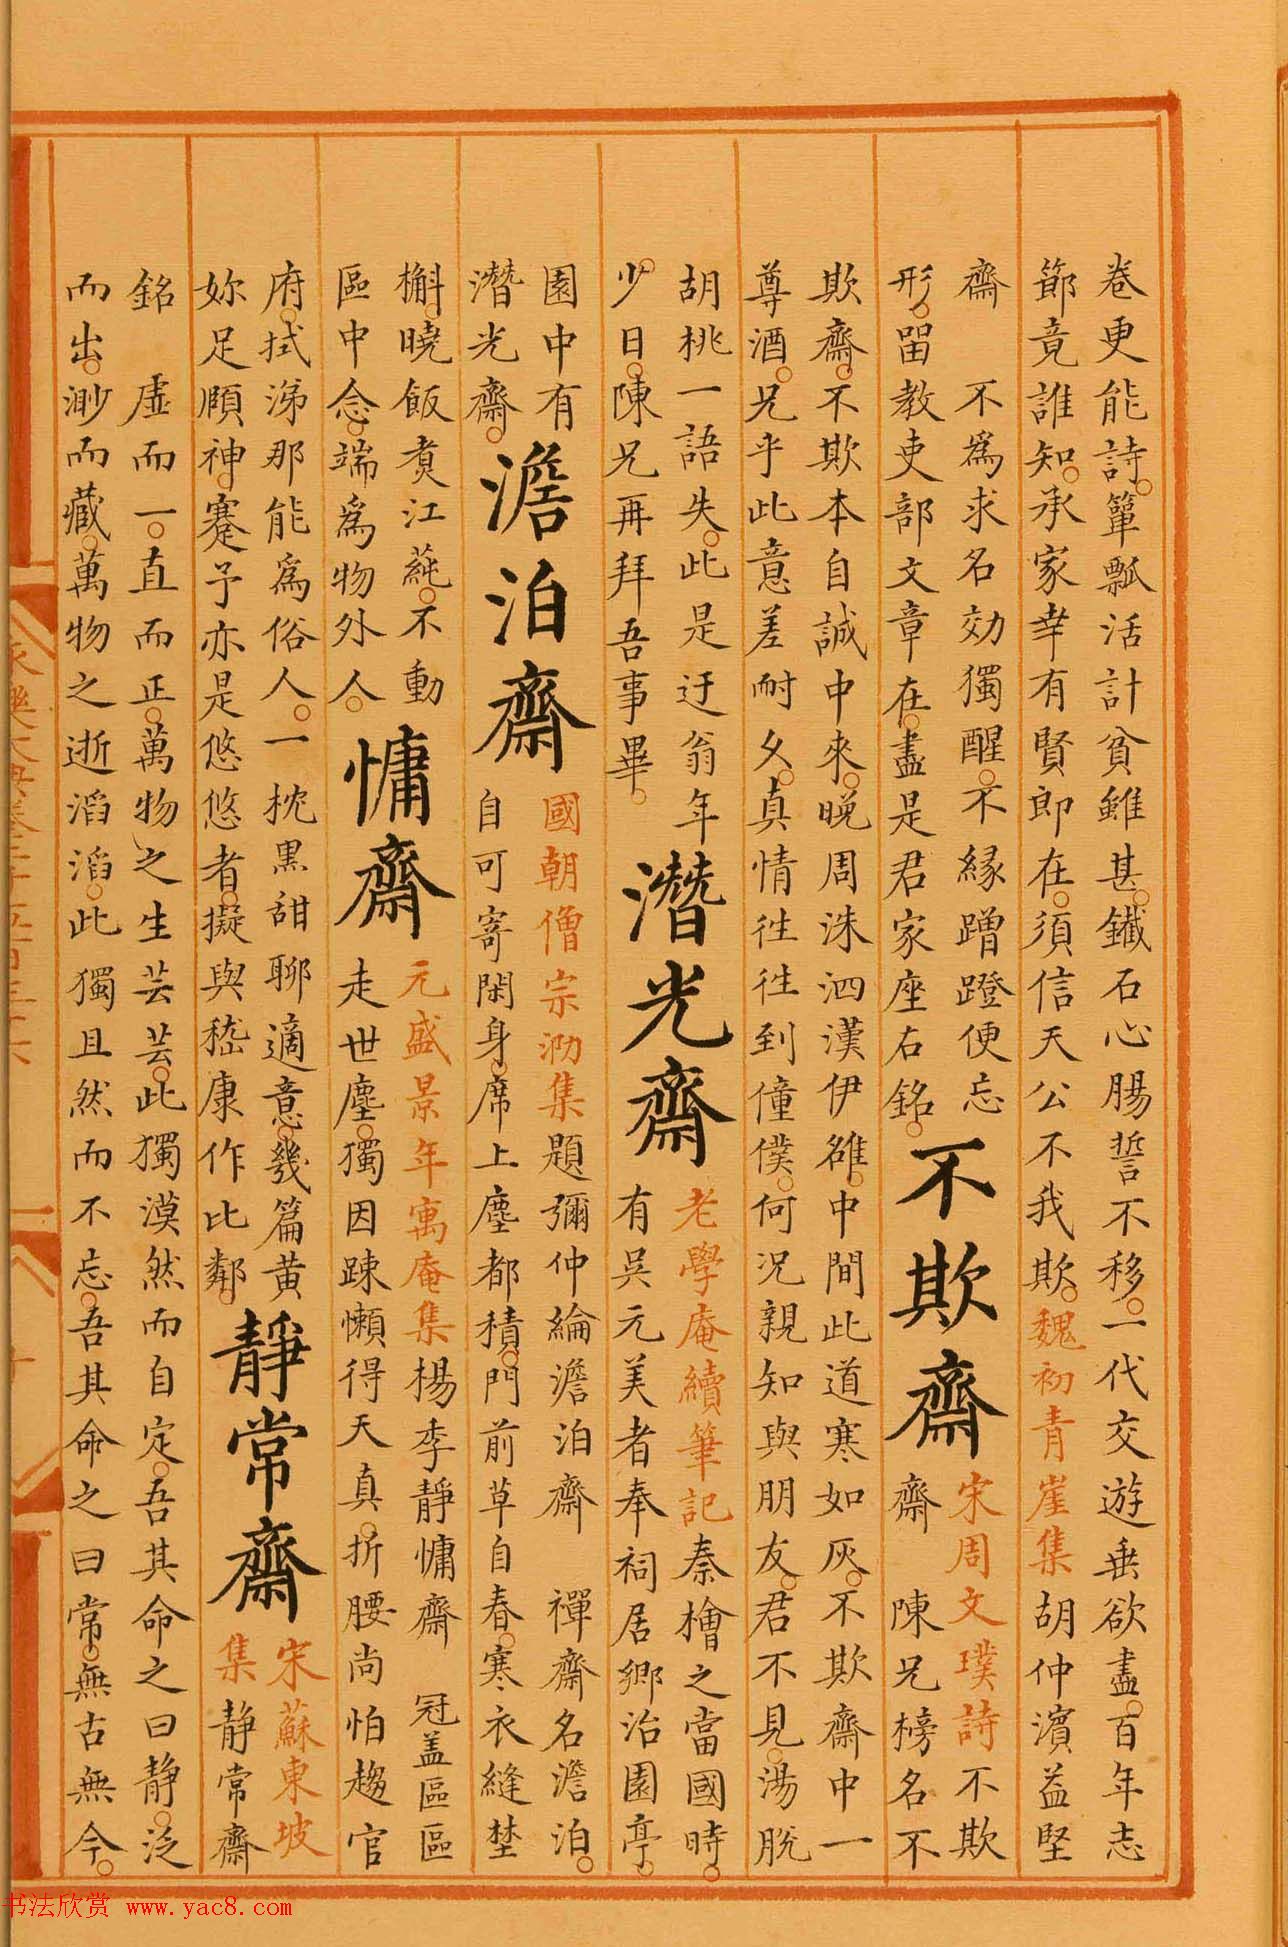 卷更能詩簞瓢活計貧雖甚鐵石心腸誓不移一代交遊垂欲盡百年志
節竟誰知承家幸有賢郎在須信天公不我欺魏初青崖集胡仲濱益堅
齋　不為求名効獨醒不緣蹭蹬便忘
形留教吏部文章在盡是君家座右銘
不欺齋
宋周文璞詩不欺
齋　陳兄榜名不
欺齋不欺本自誠中來晚周洙泗漢伊雒中間此道寒如灰不欺齋中一
尊酒兄乎此意差耐久真情往往到僮僕何況親知與朋友君不見湯脫
胡桃一語失此是迂翁年
少日陳兄再拜吾事畢
潛光齋
老學庵續筆記秦檜之當國時
有吳元美者奉祠居鄉治園亭
園中有
潛光齋
澹泊齋
國朝僧宗泐集題彌仲綸澹泊齋　禪齋名澹泊
自可寄閑身席上塵都積門前草自春寒衣縫埜
槲曉飯煑江蒓不動
區中念端為物外人
慵齋
元盛景年寓庵集楊李靜慵齋　冠盖區區
走世塵獨因踈懶得天真折腰尚怕趨官
府拭涕那能為俗人一枕黒甜聊適意幾篇黄
妳足頤神蹇予亦是悠悠者擬與嵇康作比鄰
靜常齋
宋蘇東坡
集靜常齋
銘　虛而一直而正萬物之生芸芸此獨漠然而自定吾其命之曰靜泛
而出渺而藏萬物之逝滔滔此獨且然而不忘吾其命之曰常無古無今
永樂大典卷二千五百三十六
书法欣赏 www.yac8.com